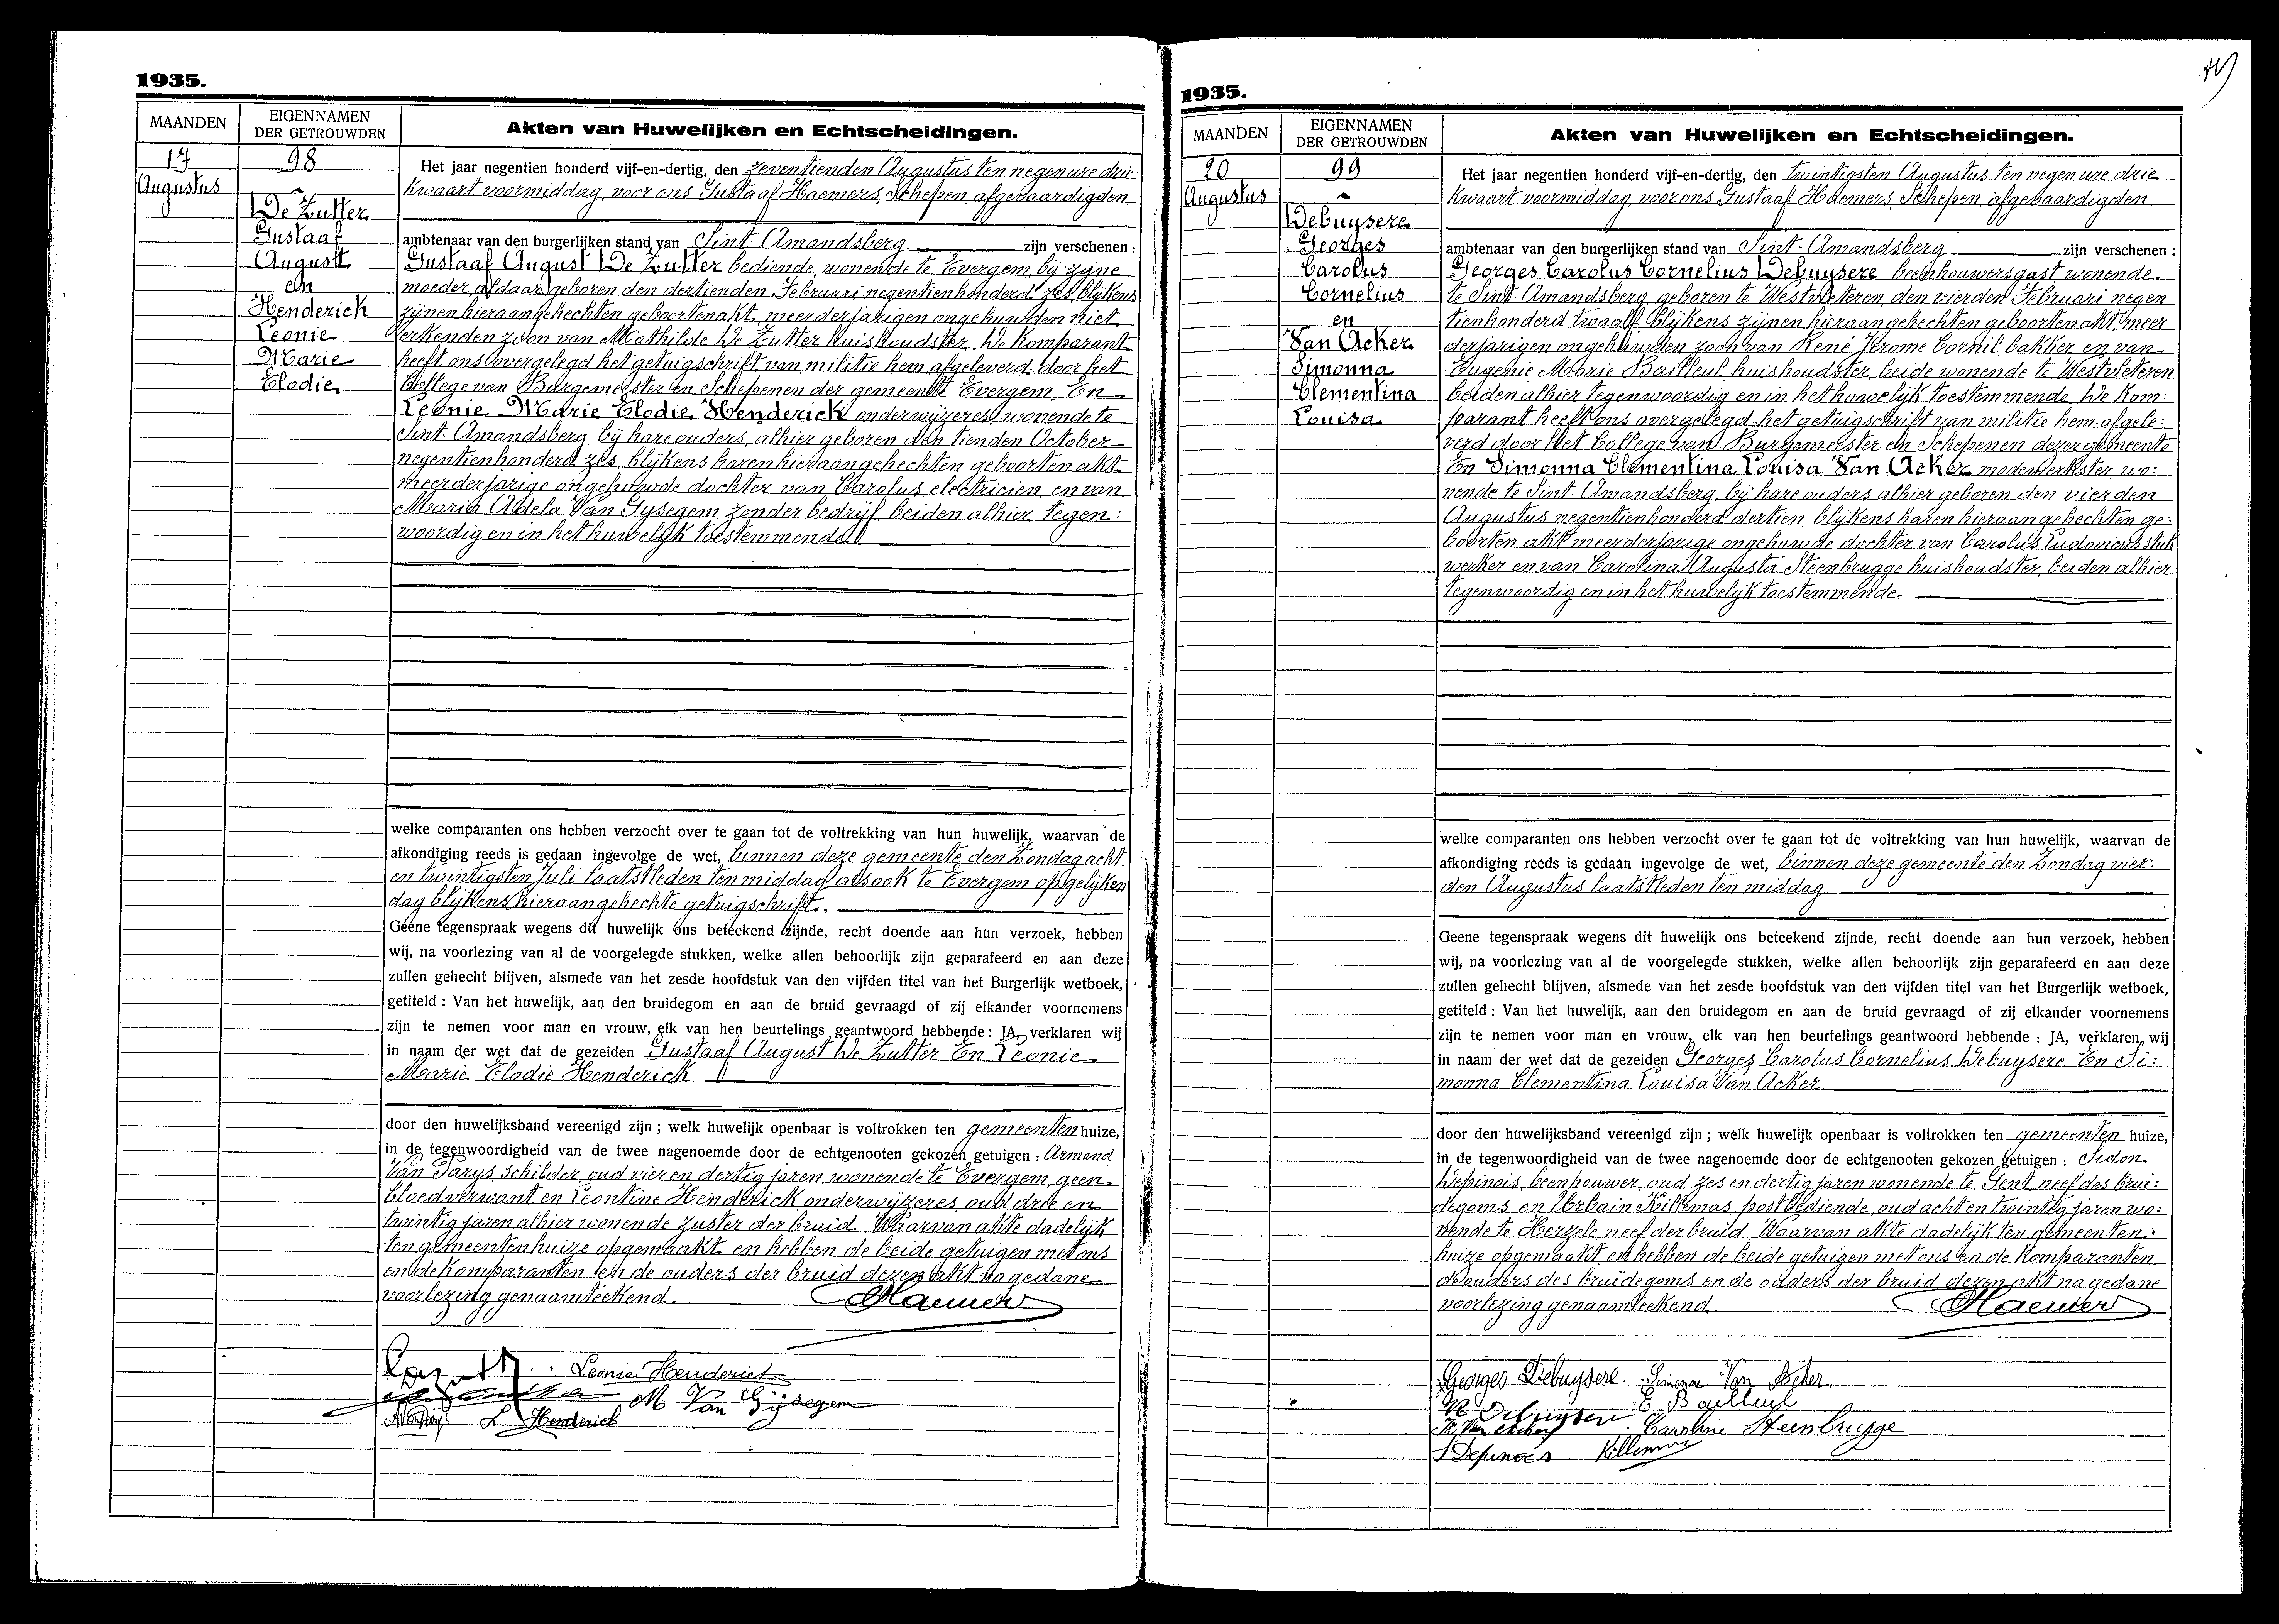 1935.
MAANDEN
EIGENNAMEN
DER GETROUWDEN
Akten van Huwelijken en Echtscheidingen.
17
Augustus
98
De Zutter
Gustaaf
August
en
Henderick
Leonie
Marie
Elodie
Het jaar negentien honderd vijf-en-dertig, den zeventienden Augustus ten negen ure drie
kwaart voormiddag, voor ons Gustaaf Haemers, Schepen, afgevaardigden
ambtenaar van den burgerlijken stand van Sint-Amandsberg zijn verschenen :
Gustaaf August De Zutter bediende, wonende te Evergem, bij zijne
moeder, aldaar geboren den dertienden Februari negentienhonderd zes, blijkens
zijnen hieraangehechten geboortenakt, meerderjarigen ongehuwden niet
erkenden zoon van Mathilde De Zutter huishoudster. De Komparant
heeft ons overgelegd het getuigschrift van militie hem afgeleverd door het
College van Burgemeester en Schepenen der gemeente Evergem. En
Leonie Marie Elodie Henderick onderwijzeres, wonende te
Sint-Amandsberg bij hare ouders, alhier geboren den tienden October
negentienhonderd zes, blijkens haren hieraangehechten geboortenakt
meerderjarige ongehuwde dochter van Carolus electricien, en van
Maria Adela Van Gysegem, zonder bedrijf, beiden alhier tegen:
woordig en in het huwelijk toestemmende.
welke comparanten ons hebben verzocht over te gaan tot de voltrekking van hun huwelijk, waarvan de
afkondiging reeds is gedaan ingevolge de wet, binnen deze gemeente den Zondag acht
en twintigsten Juli laatstleden ten middag alsook te Evergem op gelijken
dag blijkens hieraangehechte getuigschrift.
Geene tegenspraak wegens dit huwelijk ons beteekend zijnde, recht doende aan hun verzoek, hebben
wij, na voorlezing van al de voorgelegde stukken, welke allen behoorlijk zijn geparafeerd en aan deze
zullen gehecht blijven, alsmede van het zesde hoofdstuk van den vijfden titel van het Burgerlijk wetboek,
getiteld : Van het huwelijk, aan den bruidegom en aan de bruid gevraagd of zij elkander voornemens
zijn te nemen voor man en vrouw, elk van hen beurtelings geantwoord hebbende : JA, verklaren wij
in naam der wet dat de gezeiden Gustaaf August De Zutter En Leonie
Marie Elodie Henderick
door den huwelijksband vereenigd zijn ; welk huwelijk openbaar is voltrokken ten gemeenten huize,
in de tegenwoordigheid van de twee nagenoemde door de echtgenooten gekozen getuigen : Armand
Van Parys, schilder, oud vier en dertig jaren wonende te Evergem, geen
bloedverwant en Leontine Henderick, onderwijzeres, oud drie en
twintig jaren alhier wonende zuster der bruid. Waarvan akte dadelijk
ten gemeentenhuize opgemaakt en hebben de beide getuigen met ons
en de komparanten en de ouders der bruid dezen akt na gedane
voorlezing genaamteekend. Haemers
Leonie Henderick
M Van Gijsegem
L. Henderick
1935.
MAANDEN
EIGENNAMEN
DER GETROUWDEN
Akten van Huwelijken en Echtscheidingen.
20
Augustus
99
Debuysere
Georges
Carolus
Cornelius
en
Van Acker
Simonna
Clementina
Louisa
Het jaar negentien honderd vijf-en-dertig, den twintigsten Augustus ten negen ure drie
kwaart voormiddag, voor ons Gustaaf Haemers, Schepen, afgevaardigden
ambtenaar van den burgerlijken stand van Sint-Amandsberg zijn verschenen :
Georges Carolus Cornelius Debuysere beenhouwersgast wonende
te Sint-Amandsberg, geboren te Westvleteren, den vierden Februari negen
tienhonderd twaalf, blijkens zijnen hieraangehechten geboortenakt meer
derjarigen ongehuwden zoon van René Jerome Cornil, bakker, en van
Eugenie Marie Bailleul, huishoudster, beide wonende te Westvleteren
beiden alhier tegenwoordig en in het huwelijk toestemmende. De Kom:
parant heeft ons overgelegd het getuigschrift van militie hem afgele:
verd door het College van Burgemeester en Schepenen dezer gemeente
En Simonna Clementina Louisa Van Acker modewerkster, wo:
nende te Sint-Amandsberg, bij hare ouders alhier geboren den vierden
Augustus negentienhonderd dertien, blijkens haren hieraangehechten ge:
boorten akt meerderjarige ongehuwde dochter van Carolus Ludovicus stuk
werker en van Carolina Augusta Steenbrugge huishoudster, beiden alhier
tegenwoordig en in het huwelijk toestemmende.
welke comparanten ons hebben verzocht over te gaan tot de voltrekking van hun huwelijk, waarvan de
afkondiging reeds is gedaan ingevolge de wet, binnen deze gemeente den Zondag vier:
den Augustus laatstleden ten middag
Geene tegenspraak wegens dit huwelijk ons beteekend zijnde, recht doende aan hun verzoek, hebben
wij, na voorlezing van al de voorgelegde stukken, welke allen behoorlijk zijn geparafeerd en aan deze
zullen gehecht blijven, alsmede van het zesde hoofdstuk van den vijfden titel van het Burgerlijk wetboek,
getiteld : Van het huwelijk, aan den bruidegom en aan de bruid gevraagd of zij elkander voornemens
zijn te nemen voor man en vrouw, elk van hen beurtelings geantwoord hebbende : JA, verklaren wij
in naam der wet dat de gezeiden Georges Carolus Cornelius Debuysere En Si:
monna Clementina Louisa Van Acker
door den huwelijksband vereenigd zijn ; welk huwelijk openbaar is voltrokken ten gemeenten huize,
in de tegenwoordigheid van de twee nagenoemde door de echtgenooten gekozen getuigen : Sidon
Depinois, beenhouwer, oud zes en dertig jaren wonende te Gent, neef des brui:
degoms en Urbain Killemas, postbediende, oud acht en twintig jaren wo:
nende te Herzele, neef der bruid. Waarvan akte dadelijk ten gemeenten:
huize opgemaakt, en hebben de beide getuigen met ons en de Komparanten
de ouders des bruidegoms en de ouders der bruid dezen akt na gedane
voorlezing genaamteekend. Haemers
Georges Debuysere Simonne Van Acker
R Debuysere E Bailleul
Caroline Steenbrugge
S Depinois